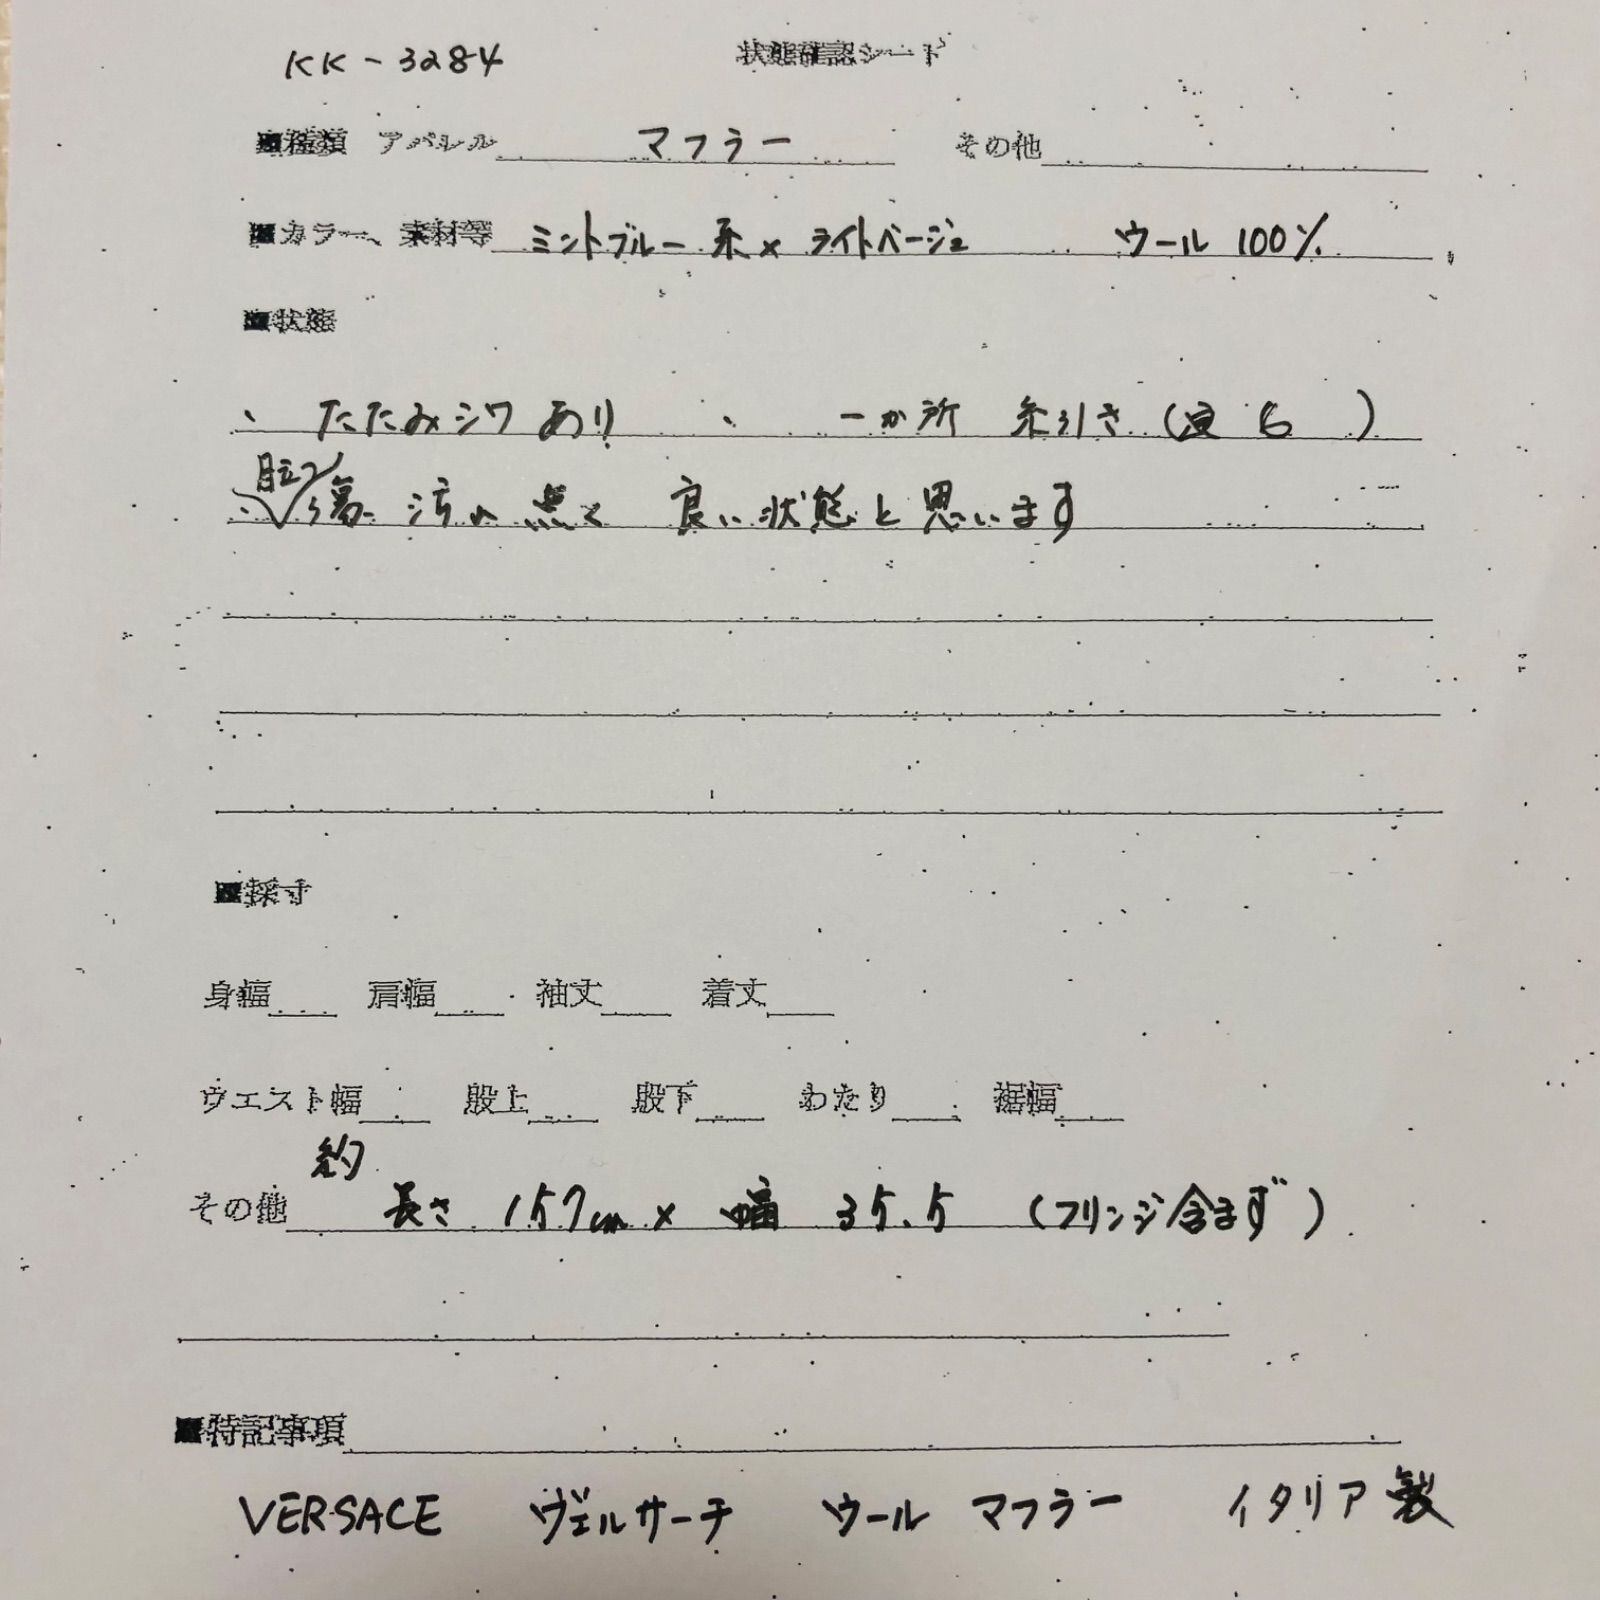 KK-3284
状態確認シート
■種類 アパレル マフラー その他
■カラー、素材等 ミントブルー系×ライトベージュ ウール 100%
■状態
、たたみシワあり 、一か所 糸引き（ ）
目立つ傷 汚れ 無く 良い状態と思います
■採寸
身幅 肩幅 袖丈 着丈
ウエスト幅 股上 股下 わたり 裾幅
約
その他 長さ 157cm × 幅 35.5 （フリンジ含まず）
■特記事項
VERSACE ヴェルサーチ ウール マフラー イタリア製